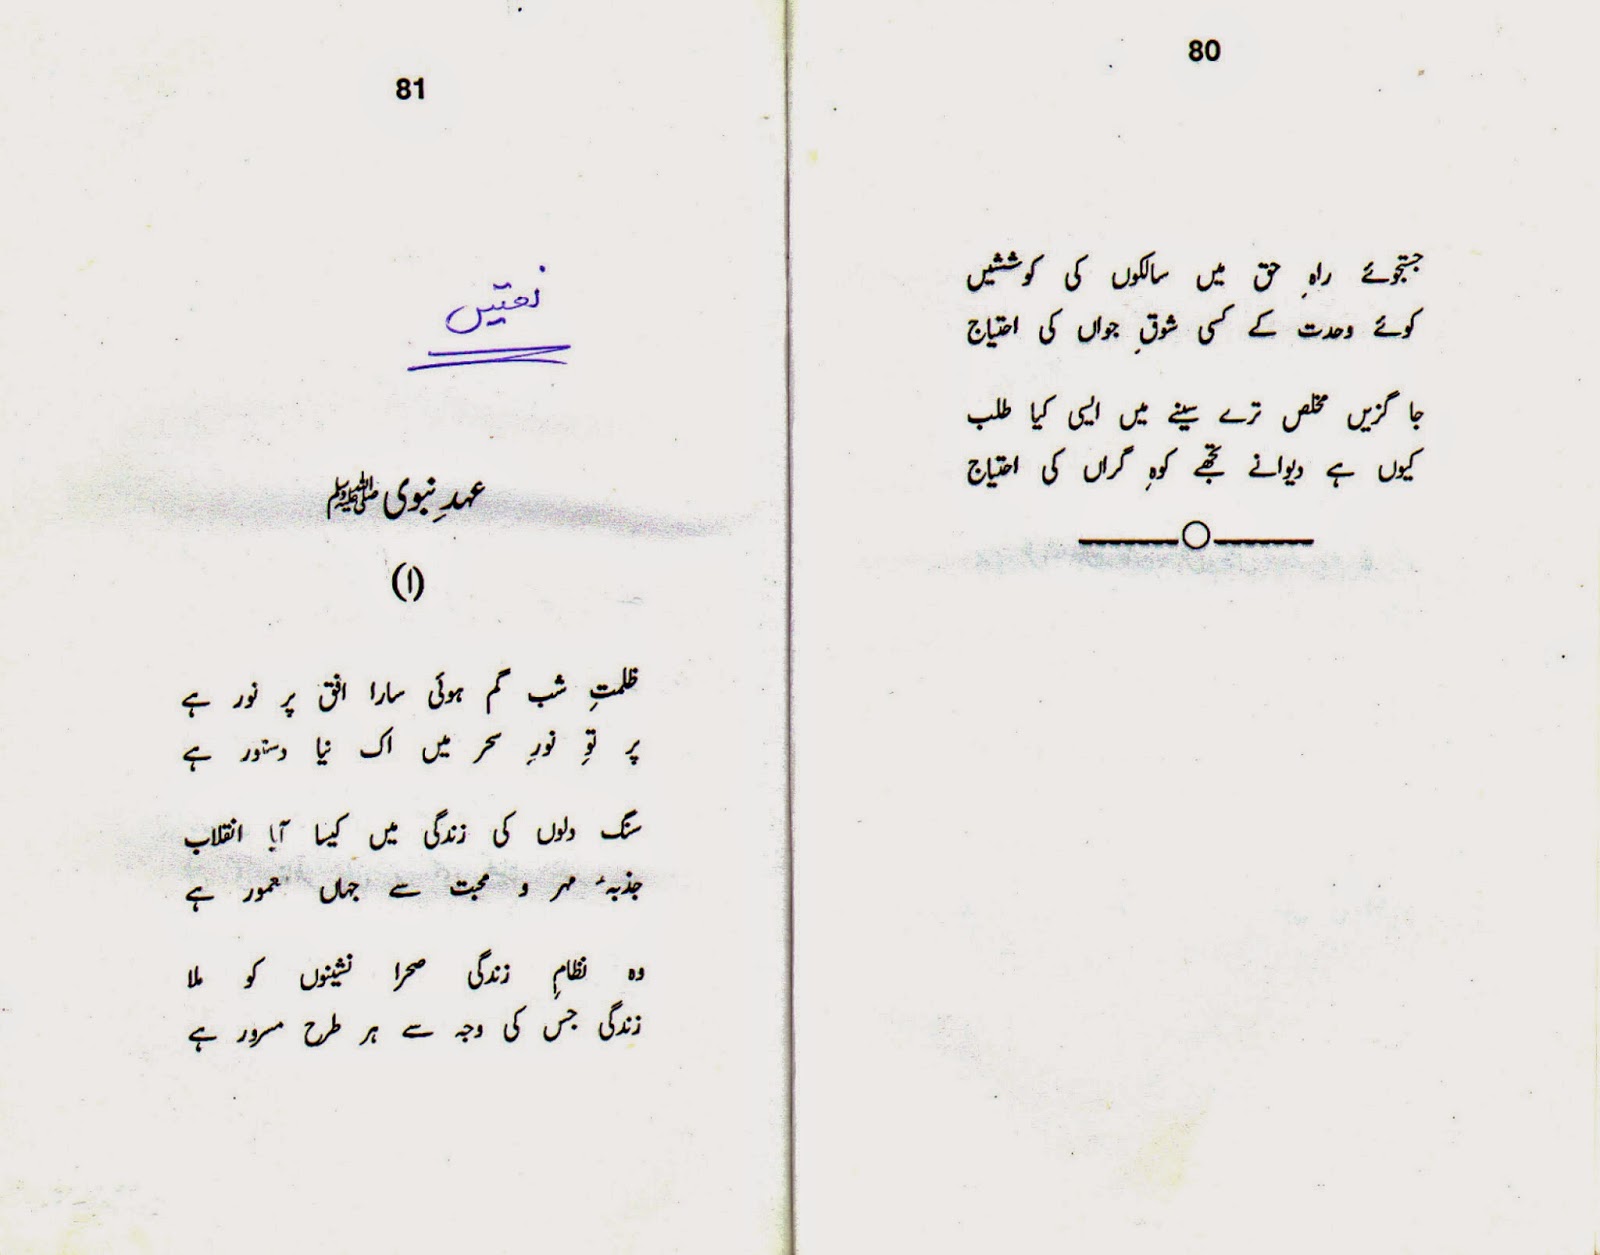 80
جستجوئے راہِ حق میں سالکوں کی کوششیں
کوئے وحدت کے کسی شوقِ جواں کی احتیاج
جا گزیں مخلص ترے سینے میں ایسی کیا طلب
کیوں ہے دیوانے تجھے کوہِ گراں کی احتیاج
81
نعتیں
عہدِ نبوی ﷺ
(۱)
ظلمتِ شب گم ہوئی سارا افق پر نور ہے
پر توِ نورِ سحر میں اک نیا دستور ہے
سنگ دلوں کی زندگی میں کیسا آیا انقلاب
جذبۂ مہر و محبت سے جہاں معمور ہے
وہ نظامِ زندگی صحرا نشینوں کو ملا
زندگی جس کی وجہ سے ہر طرح مسرور ہے